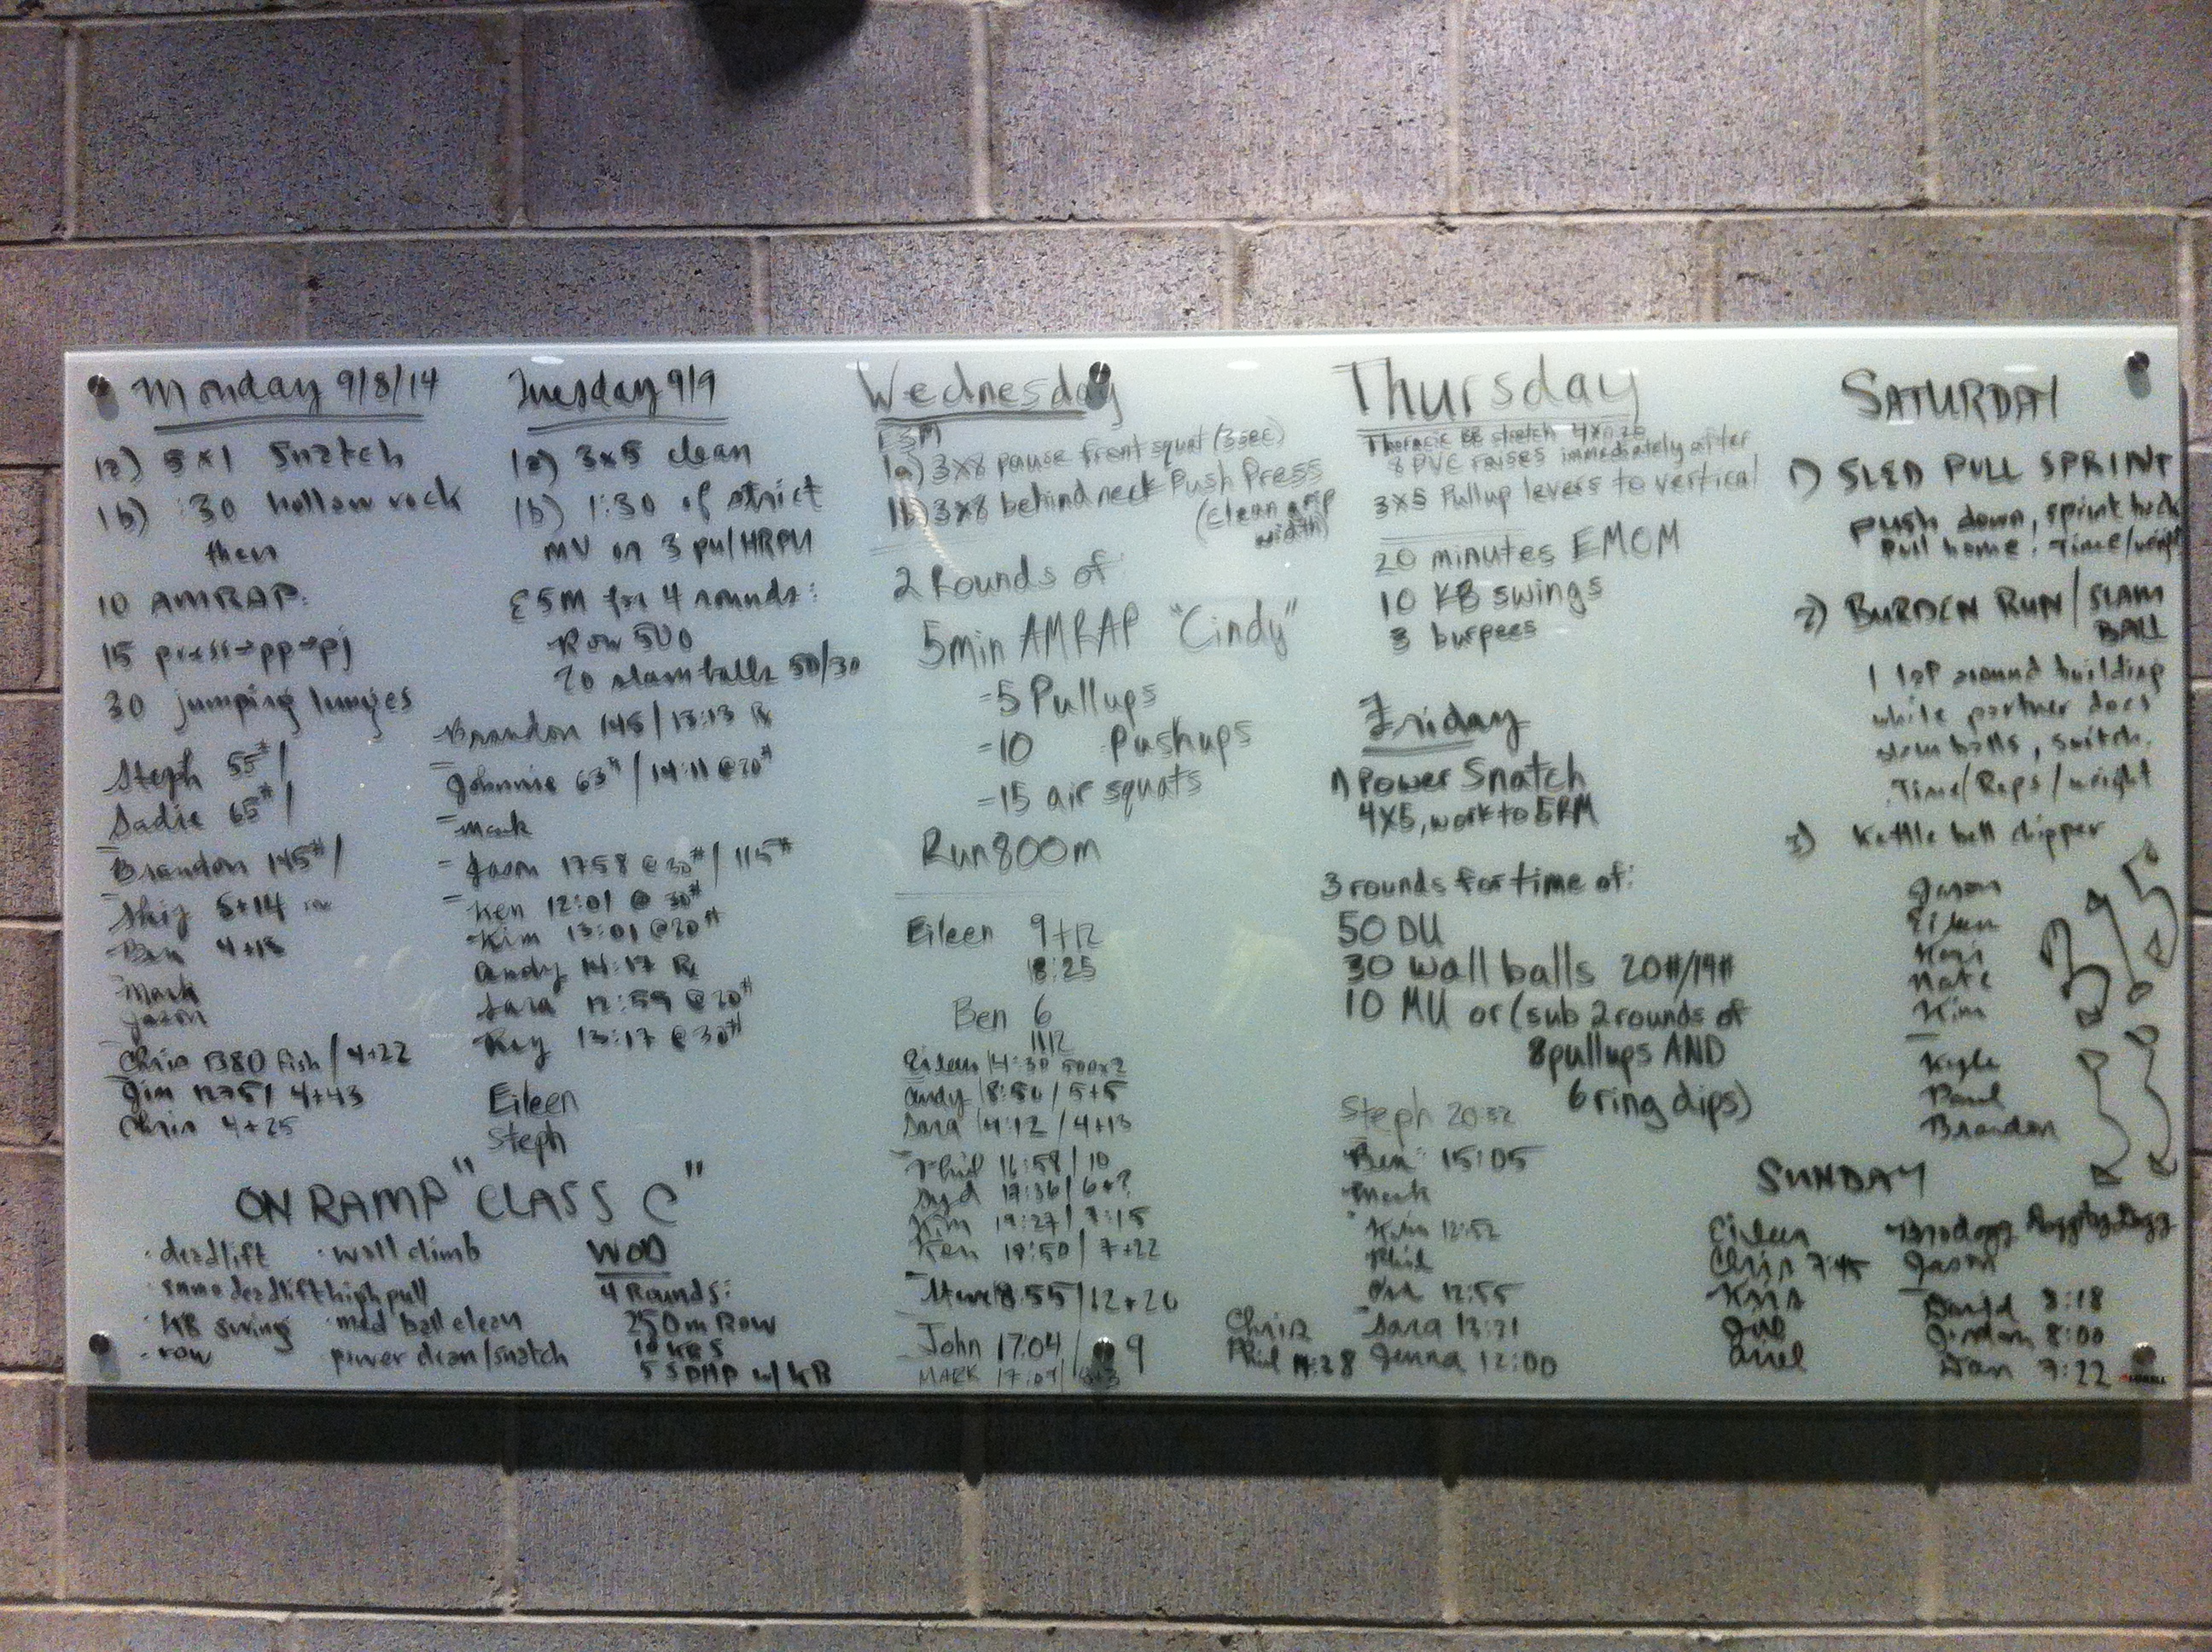 Monday 9/8/14
1a) 5x1 Snatch
1b) :30 hollow rock
then
10 AMRAP:
15 press→pp→pj
30 jumping lunges
Steph 55# /
Sadie 65# /
Brandon 145# /
5+14
Ben 4+18
Mark
Jason
Chris 1380 Fish / 4+22
Jim 4+43
Chris 4+25
Tuesday 9/9
1a) 3x5 clean
1b) 1:30 of strict
MU or 3 pu/HRPU
E5M for 4 rounds:
Row 500
20 slam balls 50/30
Brandon 145 / 13:13 Rx
Johnnie 63# / 14:11 @20#
Mark
Jason 17:58 @30# / 115#
Ken 12:01 @ 30#
Kim 13:01 @20#
Andy 14:17 Rx
Sara 12:59 @20#
13:17 @30#
Eileen
Steph
ON RAMP "CLASS C"
· deadlift
· sumo deadlift high pull
· KB swing
· row
· wall climb
· med ball clean
power clean/snatch
WOD
4 Rounds:
250m Row
10 KBS
5 SDHP w/ KB
Wednesday
E3M
1a) 3x8 pause front squat (3sec)
1b) 3x8 behind neck Push Press
(clean grip
width)
2 Rounds of
5min AMRAP "Cindy"
-5 Pullups
-10 Pushups
-15 air squats
Run 800m
Eileen 9+12
18:25
Ben 6
1112
Eileen 14:30 500x2
Andy 18:50 / 5+5
Sara 14:12 / 4+13
Phil 16:58 / 10
Syd 17:36 / 6+?
Kim 19:27 /
Ken 19:50 / 7+22
18:55 / 12+20
John 17:04 / 9
MARK
Thursday
Thoracic BB stretch
8 PVC raises immediately after
3x5 Pullup levers to vertical
20 minutes EMOM
10 KB swings
3 burpees
Friday
1) Power Snatch
4x5, work to 5RM
3 rounds for time of:
50 DU
30 wall balls 20#/14#
10 MU or (sub 2 rounds of
8 pullups AND
6 ring dips)
Steph 20:32
Ben 15:05
Mark
Kim 12:52
Phil
12:55
Chris
Sara 13:21
Phil
Jenna 12:00
SATURDAY
1) SLED PULL SPRINT
push down, sprint back
pull home! Time/weight
2) BURDEN RUN / SLAM
BALL
1 lap around building
while partner does
slam balls, switch.
Time/Reps/weight
3) Kettle bell chipper
Jason
Eileen
Nate
Kim
Kyle
Paul
Brandon
SUNDAY
Eileen
Chris 7:45
Kris
Ariel
Jason
David 8:18
8:00
Dan 7:22